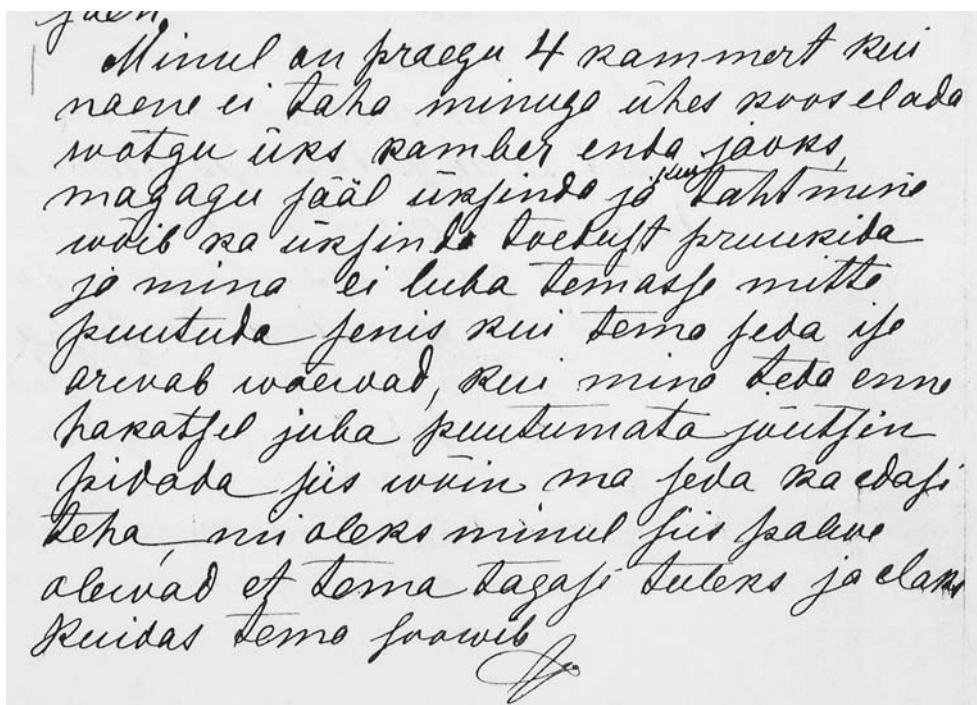 Minul on praegu 4 kammert kui
naene ei taha minuga ühes koos elada
wõtgu üks kamber enda jaoks,
magagu sääl üksinda ja kuej tahtmine
wõib ka üksinda toedust pruukida
ja mina ei luba temasse mitte
puutuda senis kui tema seda ise
arwab waewad, kui mina teda enne
hakatsel juba puutumata jõutsin
pidada siis wõin ma seda ka edasi
teha, mi oleks minul siis palwe
olewad et tema tagasi tuleks ja elaks
kuidas tema soowib